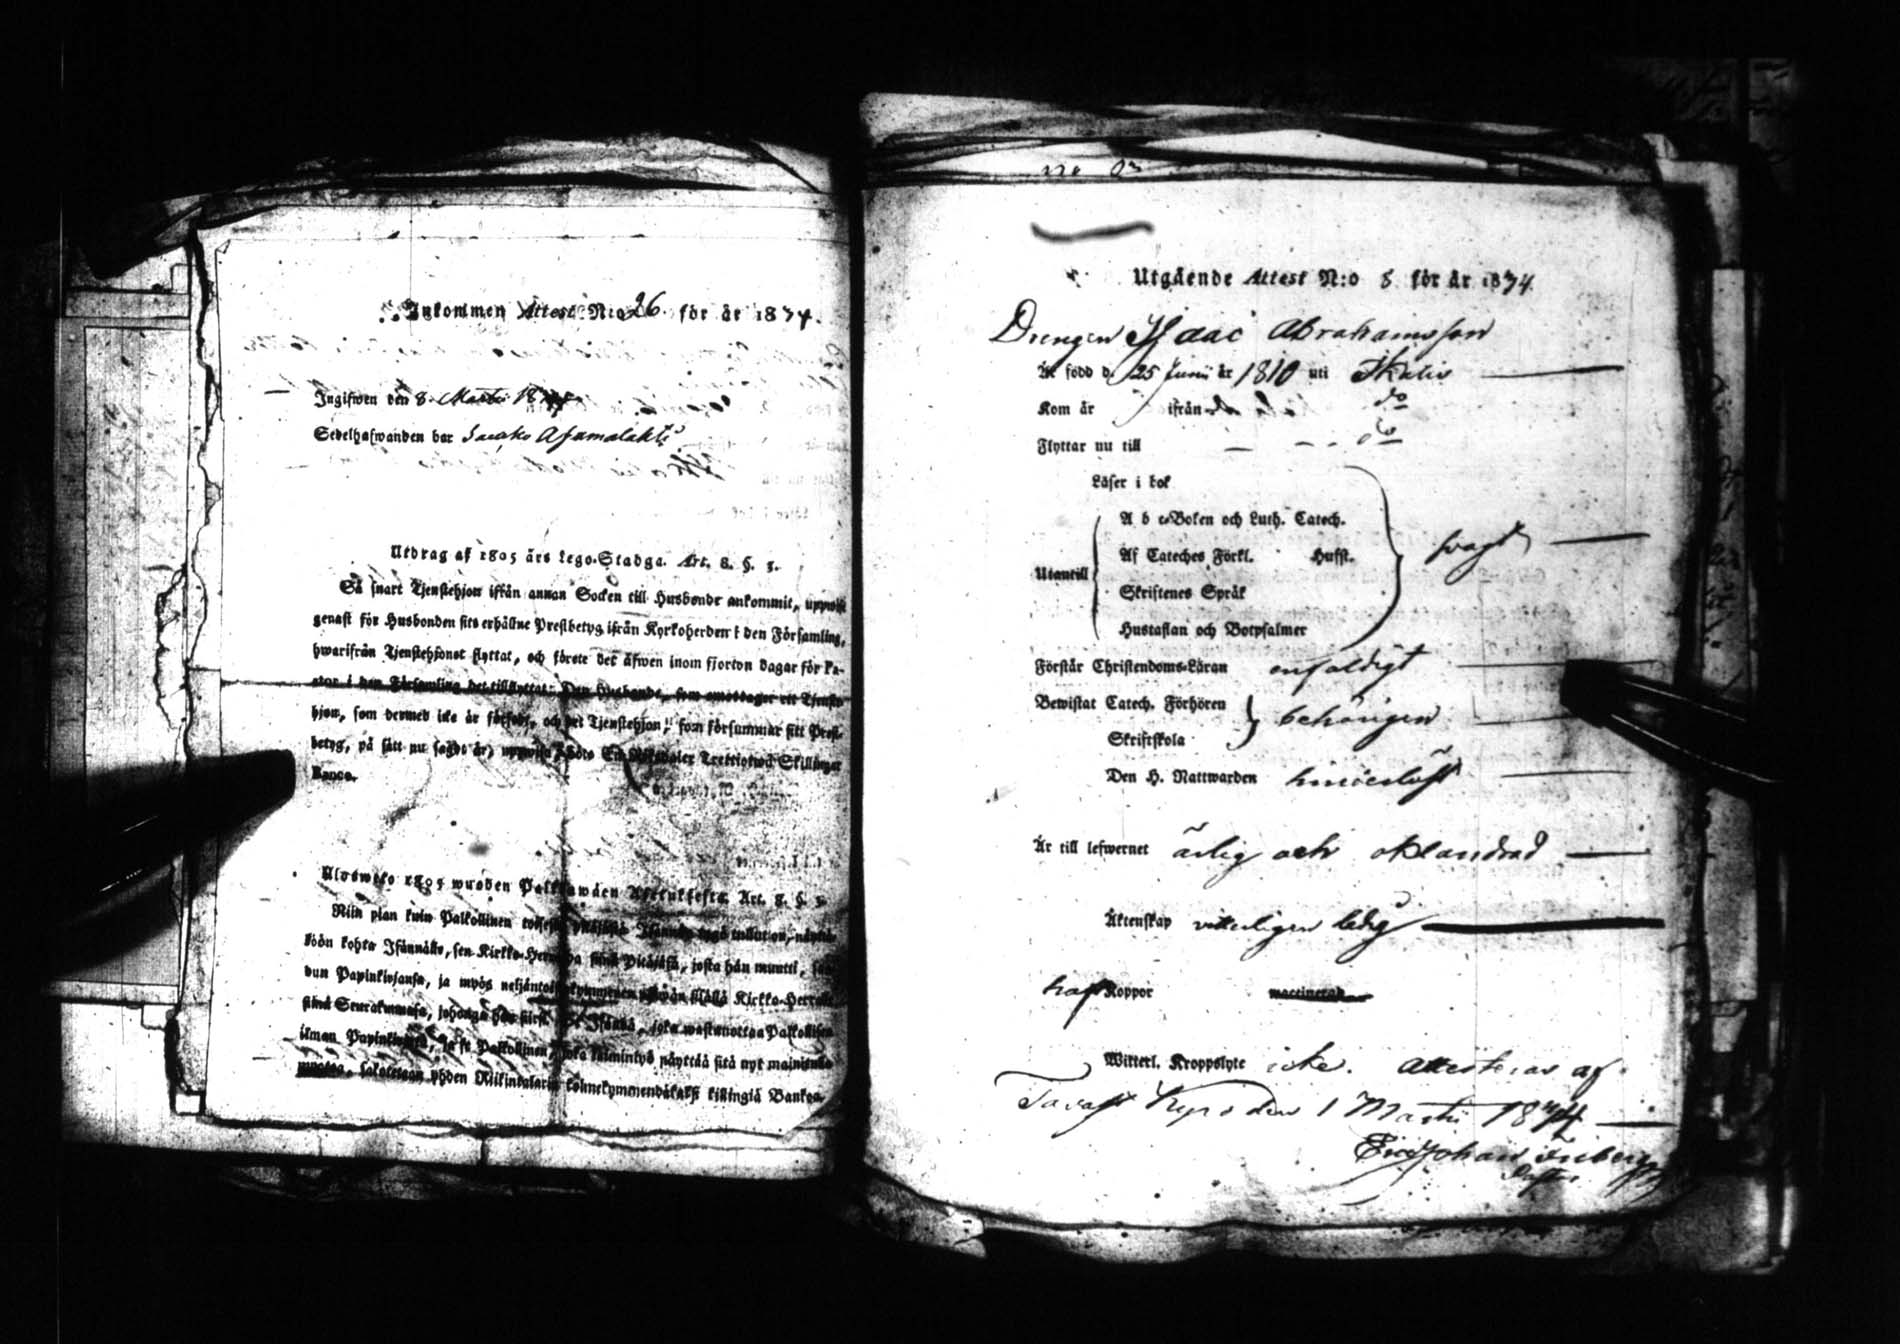 Inkommen Attest N:o 26. för år 1874.
Ingifwen den 8 Martii 1874
Sedelhafwanden bar
Utdrag af 1805 års Lego-Stadga. Art. 8. §. 3.
Så snart Tjenstehjon ifrån annan Socken till Husbonde ankommit, uppwise
genast för Husbonden sitt erhållne Prestbetyg ifrån Kyrkoherden i den Församling,
hwarifrån Tjenstehjonet flyttat, och förete det äfwen inom fjorton dagar för Pa-
stor i den Församling det tillflyttat: Den Husbonde, som emottager ett Tjenste-
hjon, som dermed icke är försedt, och det Tjenstehjon, som försummar sitt Prest-
betyg, på sätt nu sagdt är, uppwisa, böte En Riksdaler Trettiotwå Skillingar
Banco.
Ulosweto 1805 wuoden Palkkawäen Asetuksesta. Art. 8. §. 3.
Niin pian kuin Palkollinen toisesta Isännän tygö tullut on, näyttä-
köön kohta Isännälle, sen Kirkko-Herralda siinä Pitäjäsä, josta hän muutti, saa-
dun Papinkirjansa, ja myös neljäntoistakymmenen päiwän sisällä Kirkko-Herralle
siinä Seurakunnasa, johonga hän siirsi Isändä, joka wastanottaa Palkollisen
ilman Papinkirjata, ja se Palkollinen, joka laimintyö näyttää sitä nyt mainitulla
muotoa, sakotetaan yhden Riikintalarin kolmekymmendäkaksi killingiä Bankoa.
Utgående Attest N:o 8 för år 1874.
Drengen Isaac Abrahamsson
Är född d. 25 Junii år 1810 uti Ikalis
Kom år ifrån do
Flyttar nu till do
Läser i bok
A b c-Boken och Luth. Catech.
Af Cateches Förkl. Husft.
Utantill
Skriftenes Språk
Hustaflan och Botpsalmer
svagt
Förstår Christendoms-Läran enfaldigt
Bewistat Catech. Förhören
Skriftskola
behörigen
Den H. Nattwarden hinderlöst
Är till lefwernet ärlig och oklandrad
Äktenskap vitterligen ledig
haft Koppor vaccinerad
Witterl. Kroppslyte icke. Attesteras af
Tavast Kyro den 1 Martii 1874